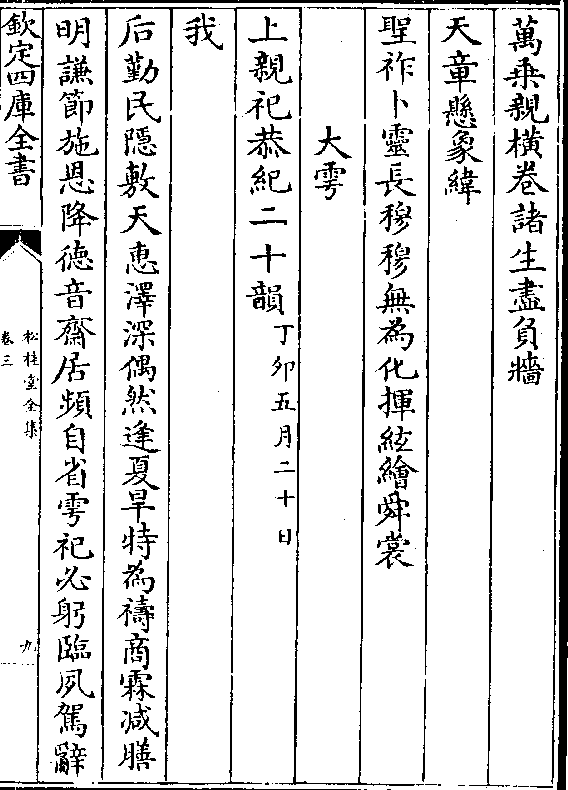 萬乘親橫卷諸生盡負牆
天章懸象緯
聖祚卜靈長穆穆無為化揮絃繪舜裳
大雩
上親祀恭紀二十韻丁卯五月二十日
我
后勤民隱敷天惠澤深偶然逢夏旱特為禱商霖減膳
明謙節施恩降德音齋居頻自省雩祀必躬臨夙駕辭
欽定四庫全書
松桂堂全集
卷三
九